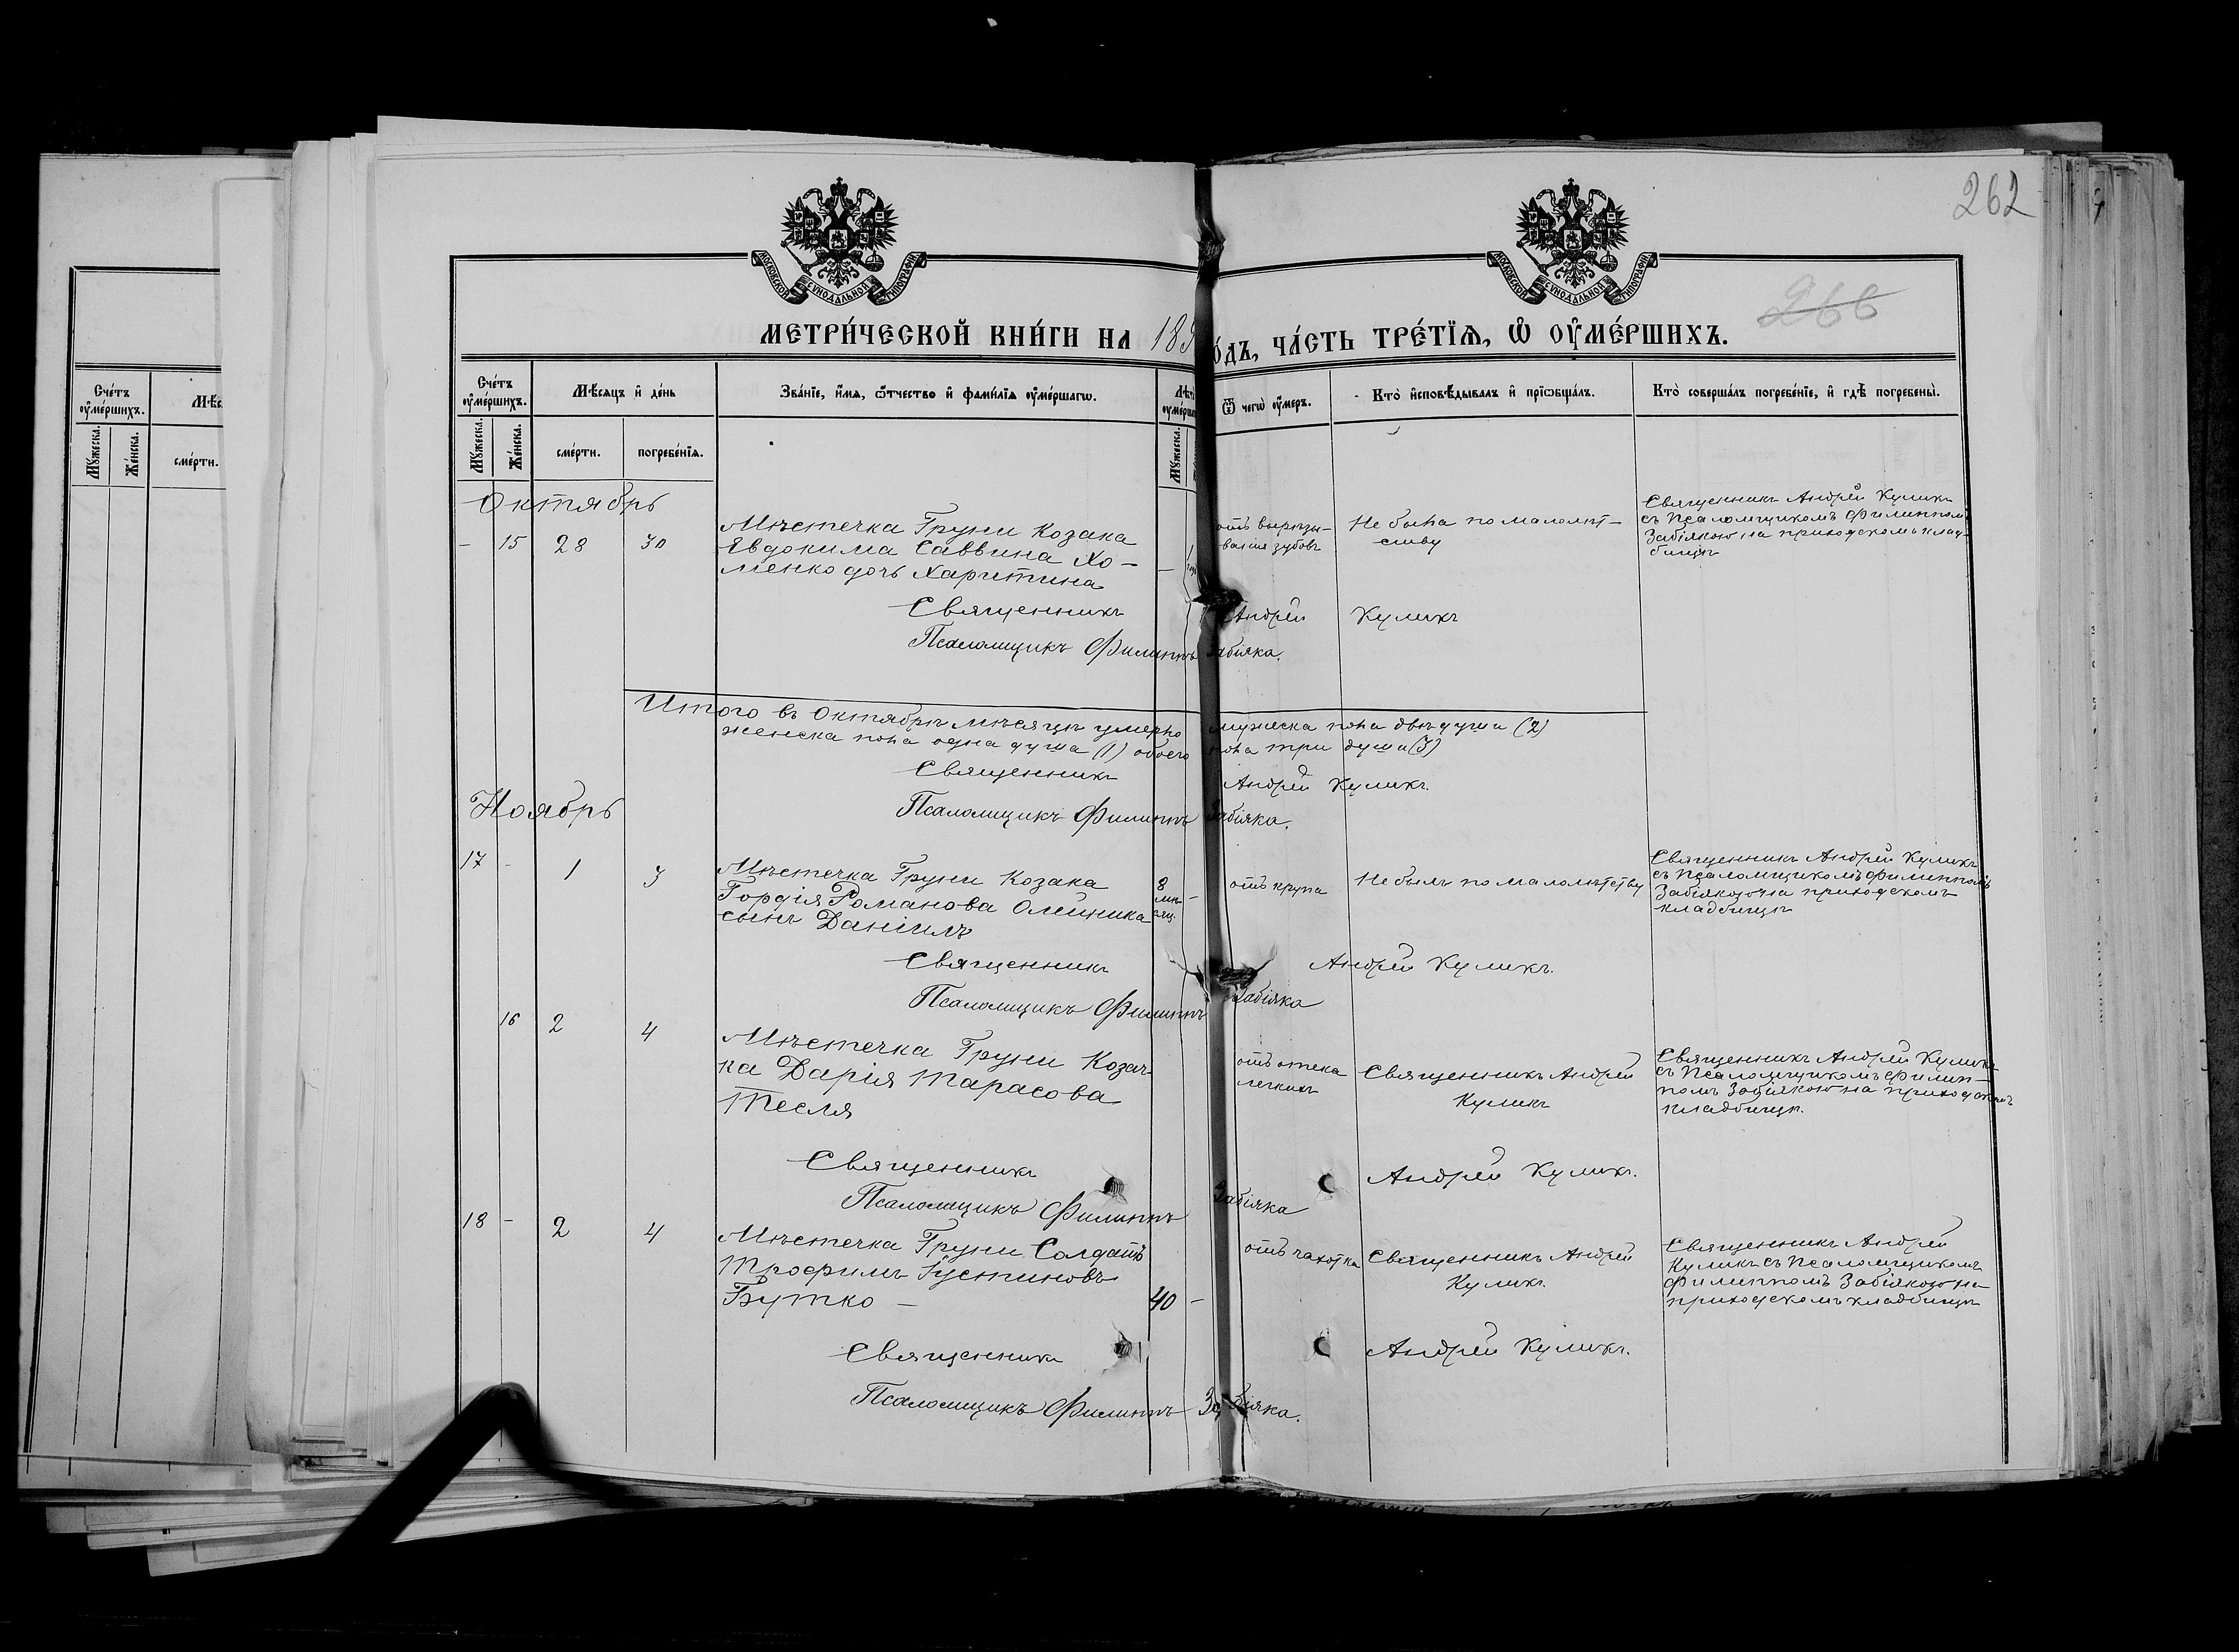 262
266
МОСКОВСКОЙ СУНОДАЛЬНОЙ ТИПОГРАФІИ
МОСКОВСКОЙ СУНОДАЛЬНОЙ ТИПОГРАФІИ
МЕТРИ́ЧЕСКОЙ КНИ́ГИ НА 189
о́дъ, ЧА́СТЬ ТРЕ́ТІѦ, Ѡ҆ ОУ҆МЕ́РШИХЪ.
Сче́тъ оу҆ме́ршихъ.
Мꙋ́жеска.
Же́нска.
сме́рти.
Сче́тъ оу҆ме́ршихъ.
Мꙋ́жеска.
Же́нска.
Мѣ́сяцъ и҆ де́нь
сме́рти.
погребе́нїѧ.
Зва́нїе, и҆́мя, ѻ҆́тчество и҆ фами́лїѧ оу҆ме́ршагѡ.
Мꙋ́жеска.
Ѿ чегѡ̀ оу҆́меръ.
Кто̀ и҆сповѣ́дывалъ и҆ прїѡбща́лъ.
Кто̀ соверша́лъ погребе́нїе, и҆ гдѣ̀ погребены̀.
Октябрь
- 15 28 30
Мѣстечка Груни Козака
Евдокима Саввина Хо-
менко дочь Харитина
отъ вырѣзы-
ванія зубовъ
Не была по малолѣт-
ству
Священникъ Андрей Куликъ
съ Псаломщикомъ Филиппомъ
Забіякою на приходскомъ клад-
бищѣ
Священникъ Андрей Куликъ
Псаломщикъ Филиппъ Забіяка.
Итого въ Октябрѣ мѣсяцѣ умерло мужеска пола двѣ души (2)
женска пола одна душа (1) обоего пола три души (3)
Священникъ Андрей Куликъ.
Псаломщикъ Филиппъ Забіяка.
Ноябрь
17 - 1 3
Мѣстечка Груни Козака
Гордія Романова Олейника
сынъ Даніилъ
8
мѣ-
сяц.
-
отъ крупа
Не былъ по малолѣтству
Священникъ Андрей Куликъ
съ Псаломщикомъ Филиппомъ
Забіякою на приходскомъ
кладбищѣ
Священникъ Андрей Куликъ.
Псаломщикъ Филиппъ Забіяка
16 2 4
Мѣстечка Груни Козач-
ка Дарія Тарасова
Тесля
отъ отека
легкихъ
Священникъ Андрей
Куликъ
Священникъ Андрей Куликъ
съ Псаломщикомъ Филип-
помъ Забіякою на приходскомъ
кладбищѣ.
Священникъ Андрей Куликъ.
Псаломщикъ Филиппъ Забіяка
18 - 2 4
Мѣстечка Груни Солдатъ
Трофимъ Іустиновъ
Бутко -
40 -
отъ чахотки
Священникъ Андрей
Куликъ
Священникъ Андрей
Куликъ съ Псаломщикомъ
Филиппомъ Забіякою на
приходскомъ кладбищѣ
Священникъ Андрей Куликъ.
Псаломщикъ Филиппъ Забіяка.